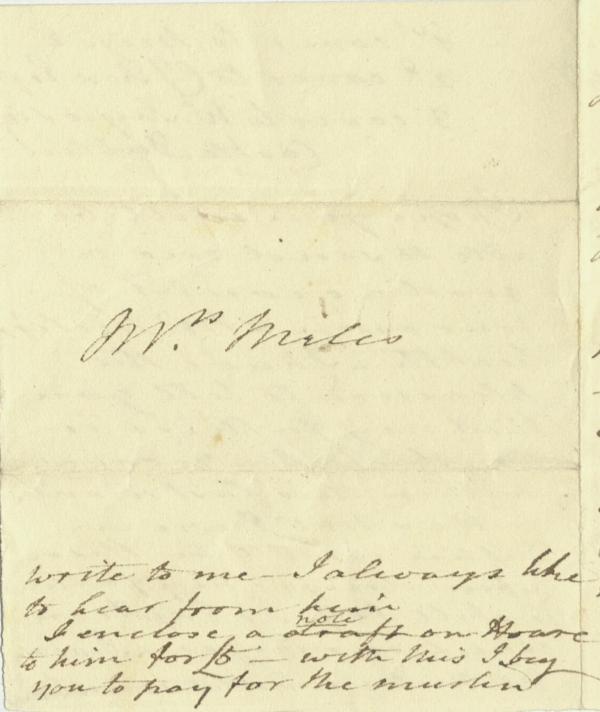 Mrs. Miles
write to me - I always like
to hear from him
note
I enclose a draft on Hoare
to him for £5 - with this I beg
you to pay for the muslin